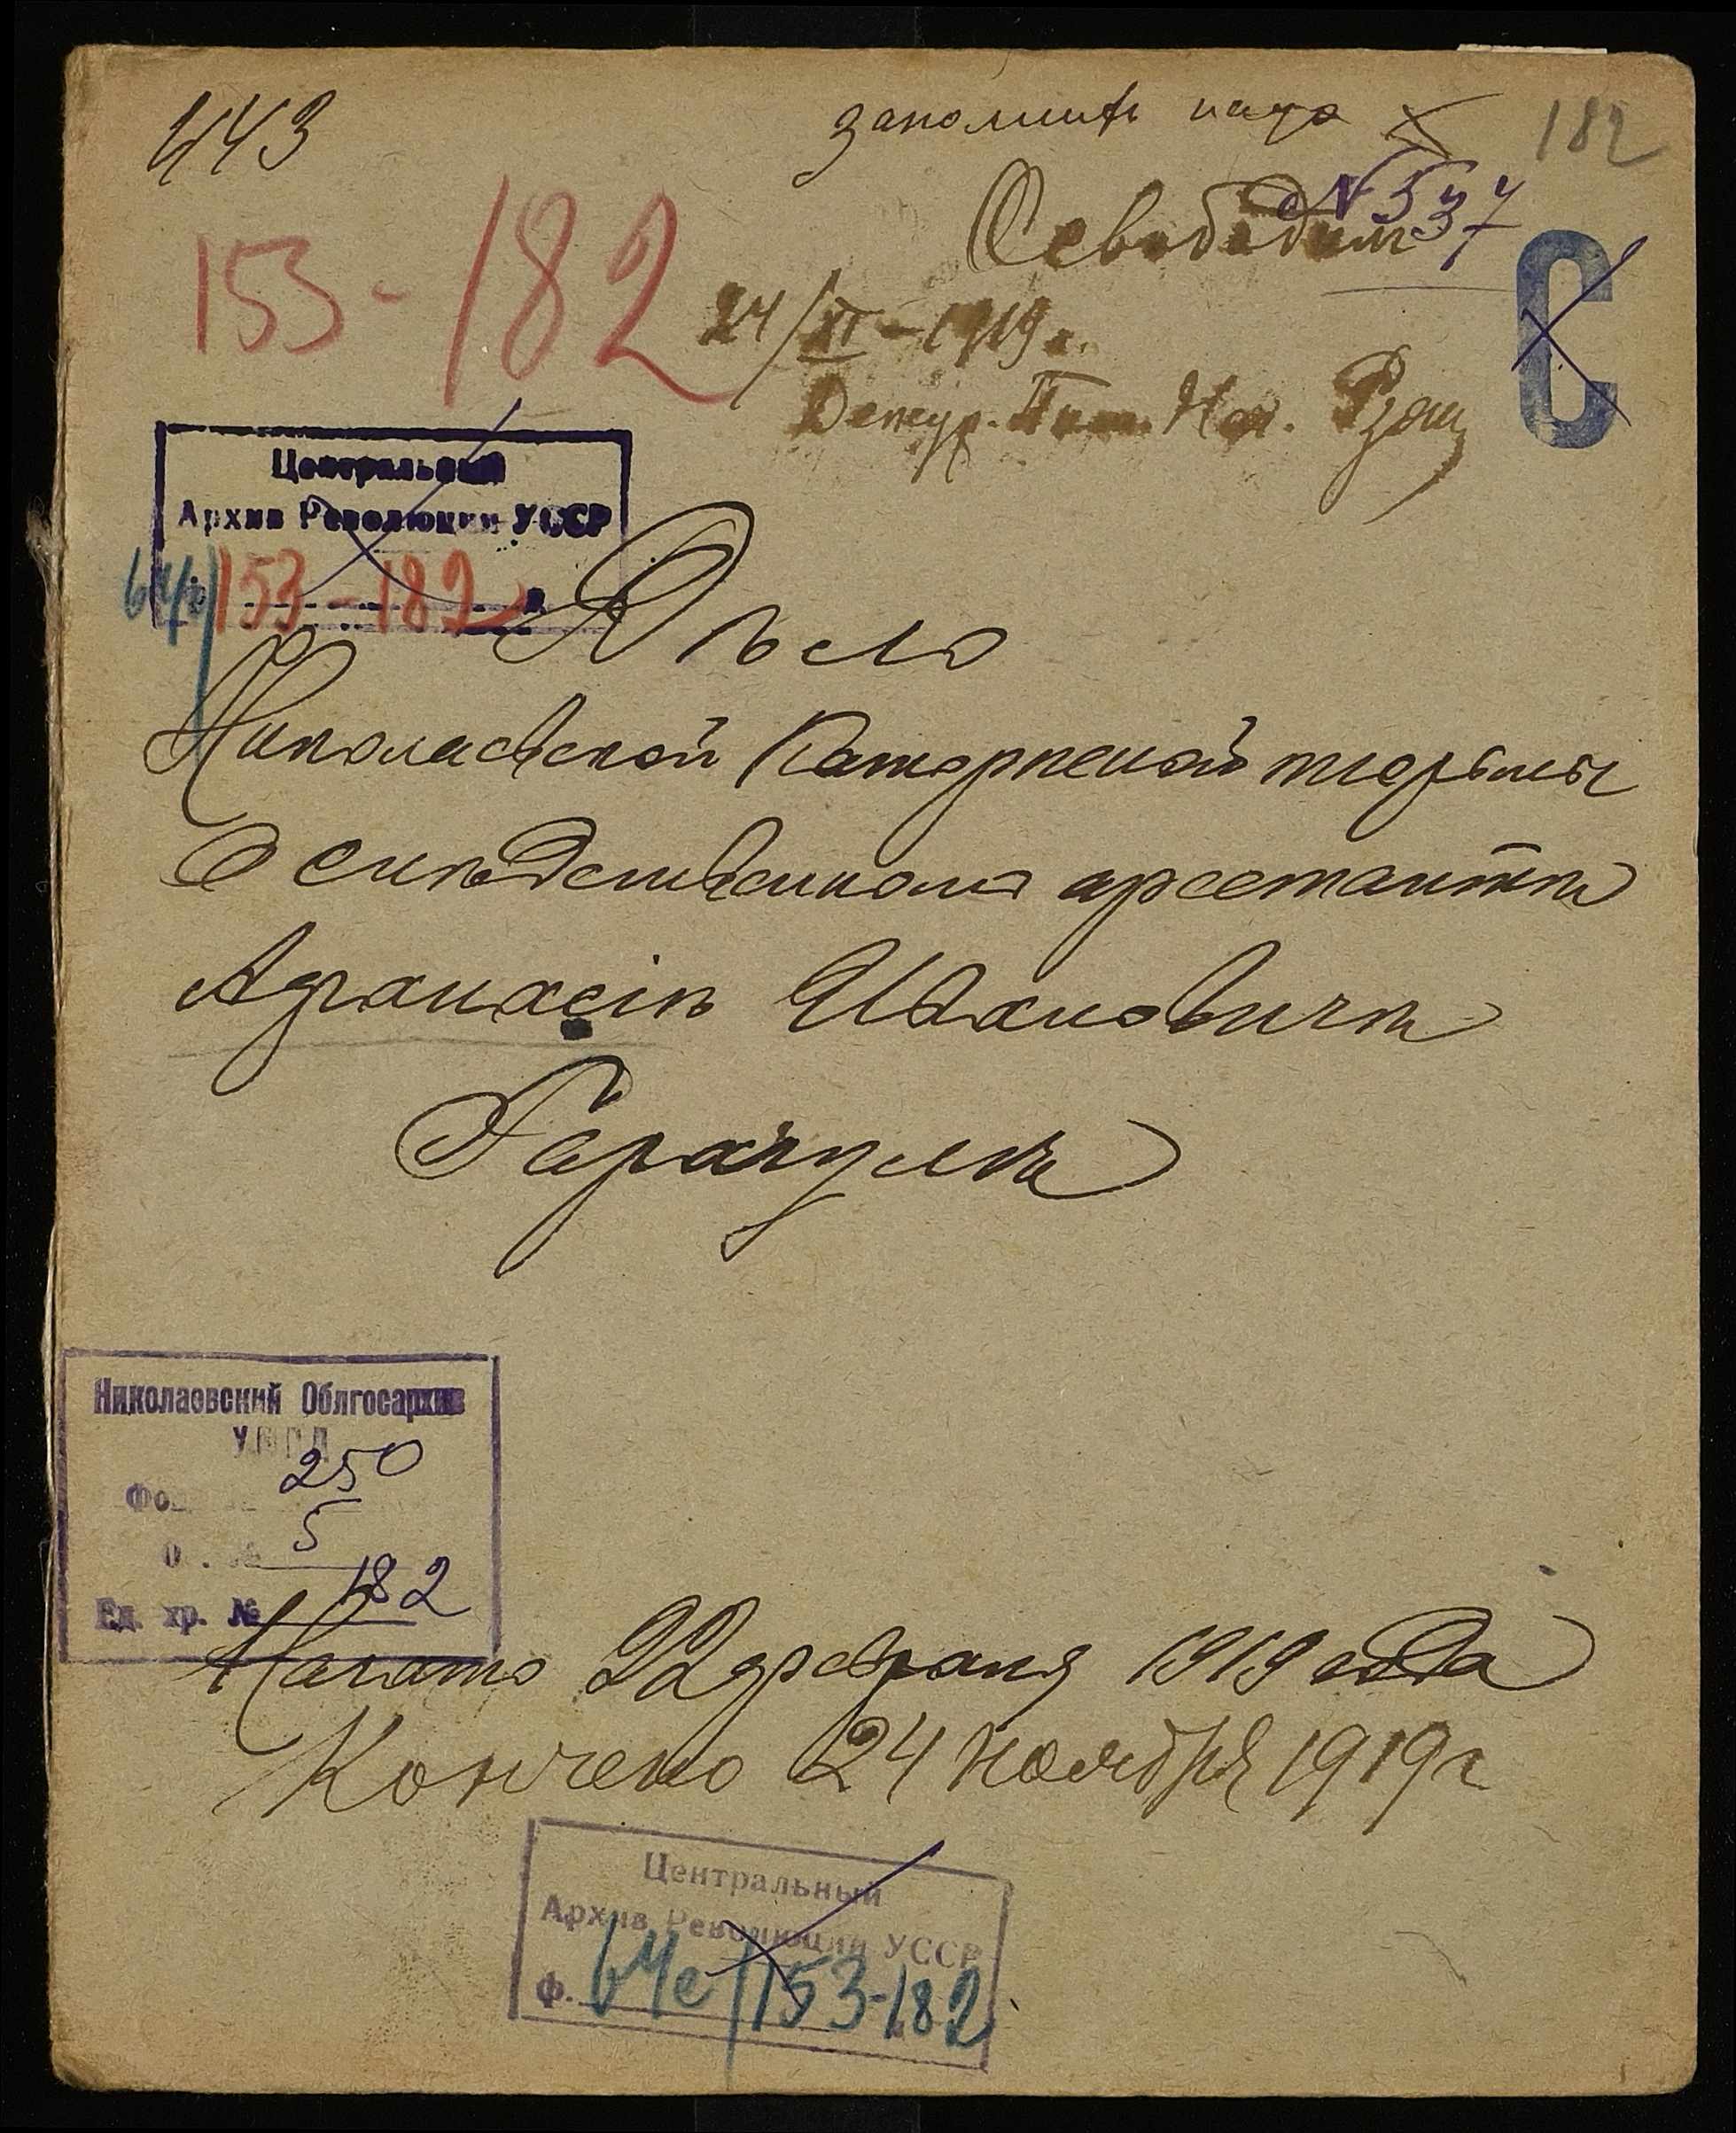 443
запомнить надо
182
№ 537
Освободит
153-182
24/XI-1919 г.
Дежур. Пом. Нач.
С
Центральный
Архив Революции УССР
153-182
Дѣло
Николаевской Каторжной тюрьмы
О слѣдственномъ арестантѣ
Афанасіѣ Ивановичѣ
Гарагулѣ
Николаевский Облгосархив
250
5
Ед. хр. № 182
Начато 22 февраля 1919 года
Кончено 24 ноября 1919 г
Центральный
Архив Революции УССР
Ф. 64с/153-182